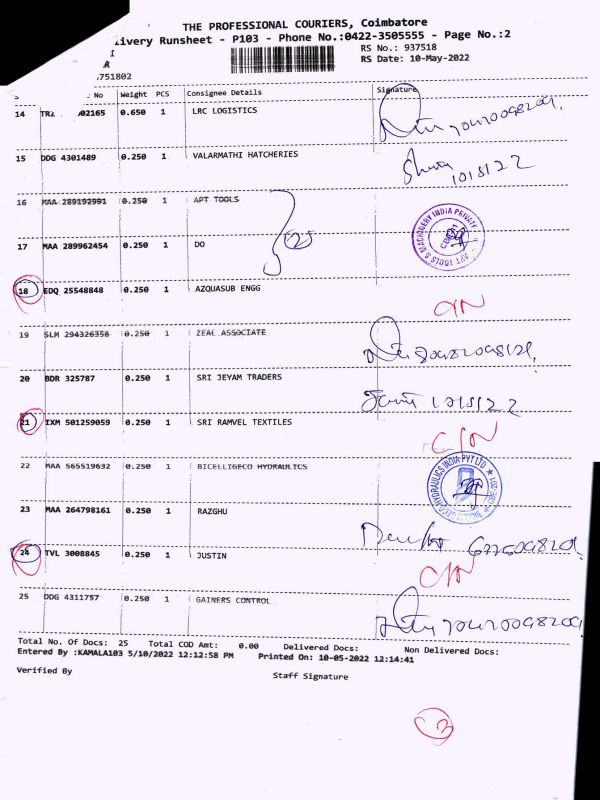 THE PROFESSIONAL COURIERS, Coimbatore
livery Runsheet - P103 - Phone No.:0422-3505555 - Page No.:2
RS No.: 937518
RS Date: 10-May-2022
751802
No Weight PCS Consignee Details Signature
14 TRZ 02165 0.650 1 LRC LOGISTICS
15 DDG 4301489 0.250 1 VALARMATHI HATCHERIES
10/5/22
16 MAA 289192991 0.250 1 APT TOOLS
17 MAA 289962454 0.250 1 DO
18 EDQ 25548848 0.250 1 AZQUASUB ENGG
19 SLM 294326358 0.250 1 ZEAL ASSOCIATE
20 BDR 325787 0.250 1 SRI JEYAM TRADERS
10/5/22
21 IXM 501259059 0.250 1 SRI RAMVEL TEXTILES
C/N
22 MAA 565519632 0.250 1 BICELLIGECO HYDRAULICS
23 MAA 264798161 0.250 1 RAZGHU
24 TVL 3008845 0.250 1 JUSTIN
C/N
25 DDG 4311757 0.250 1 GAINERS CONTROL
Total No. Of Docs: 25 Total COD Amt: 0.00 Delivered Docs: Non Delivered Docs:
Entered By :KAMALA103 5/10/2022 12:12:58 PM Printed On: 10-05-2022 12:14:41
Verified By Staff Signature